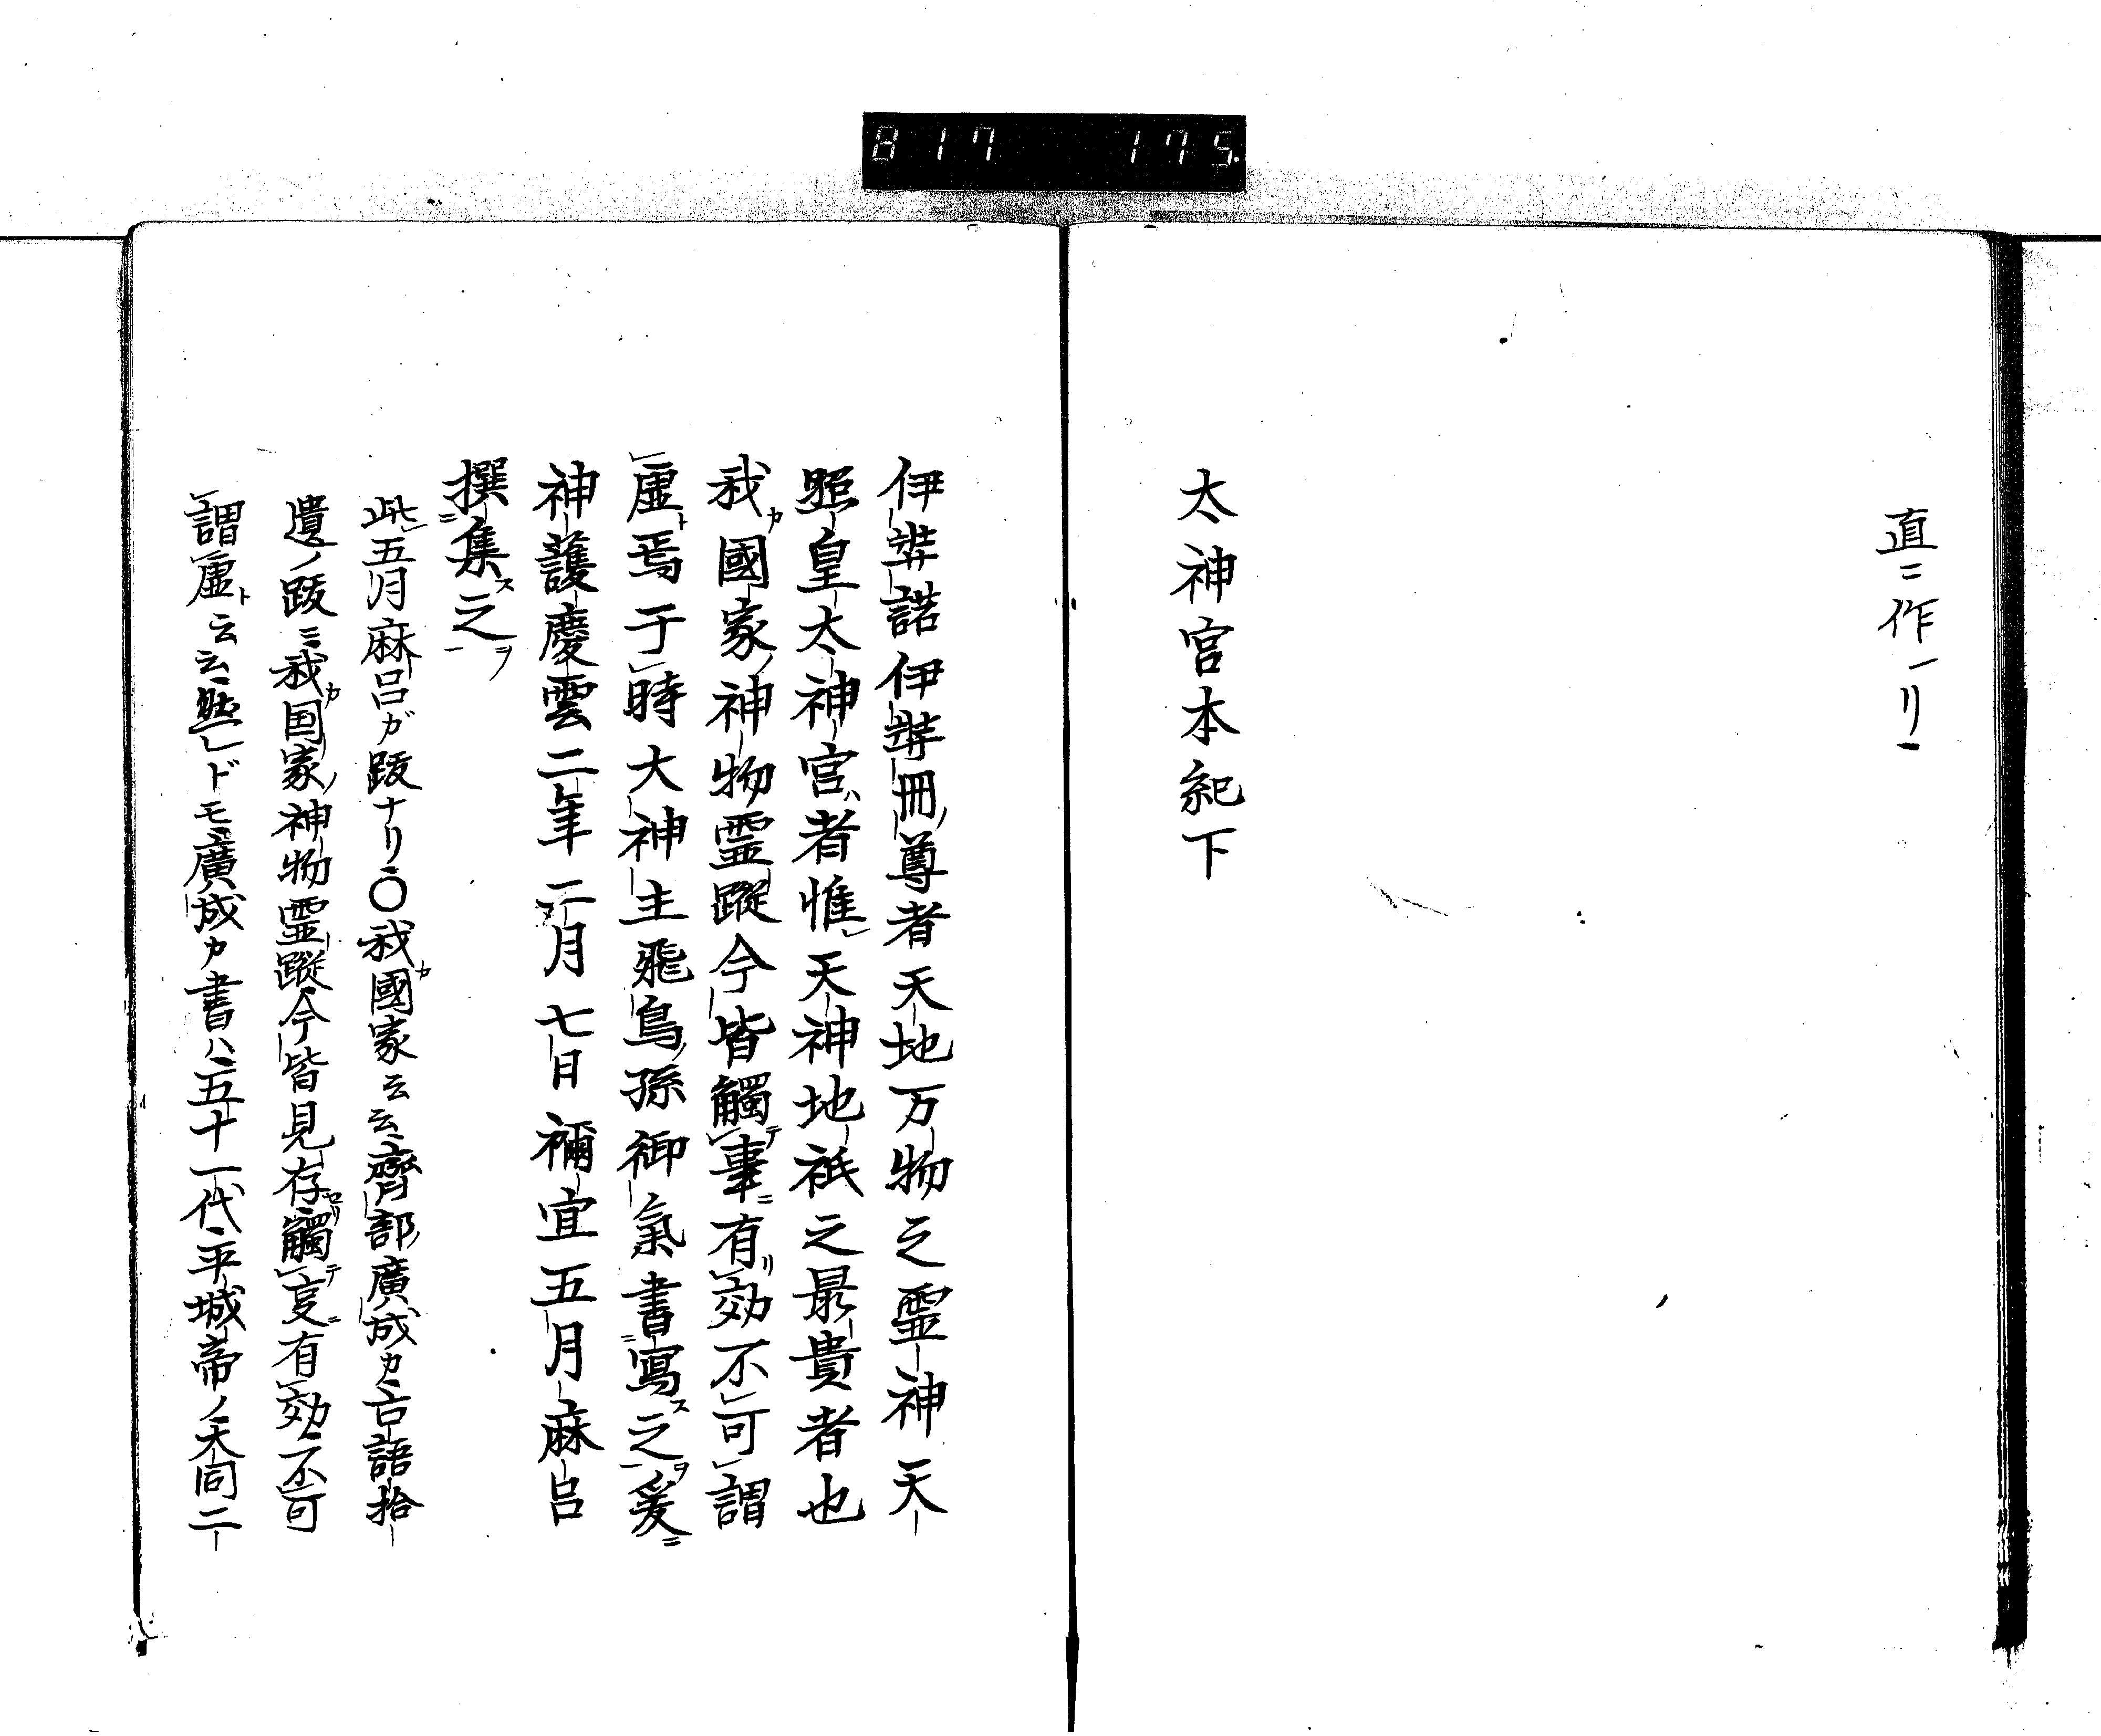 817 175.
直ニ作レリ
太神宮本紀下
伊弉諾伊弉冊ノ尊者天地万物之霊神天
照皇太神宮ハ者惟レ天神地祇之最貴者也
我カ國家ノ神物霊蹤今皆觸テ事ニ有リ効不可謂
虚ト焉于時大神主飛鳥ノ孫御氣書ニ寫ス之ヲ爰ニ
神護慶雲二年二月七日禰宜五月麻呂
撰ニ集ス之ヲ
此レ五月麻呂ガ跋ナリ〇我カ國家云云齊部ノ廣成カ古語拾
遺ノ跋ニ我カ国家ノ神物霊蹤今皆見存セリ觸テ叓ニ有効不可
謂虚ト云云然レドモ廣成カ書ハ五十一代平城帝ノ大同二